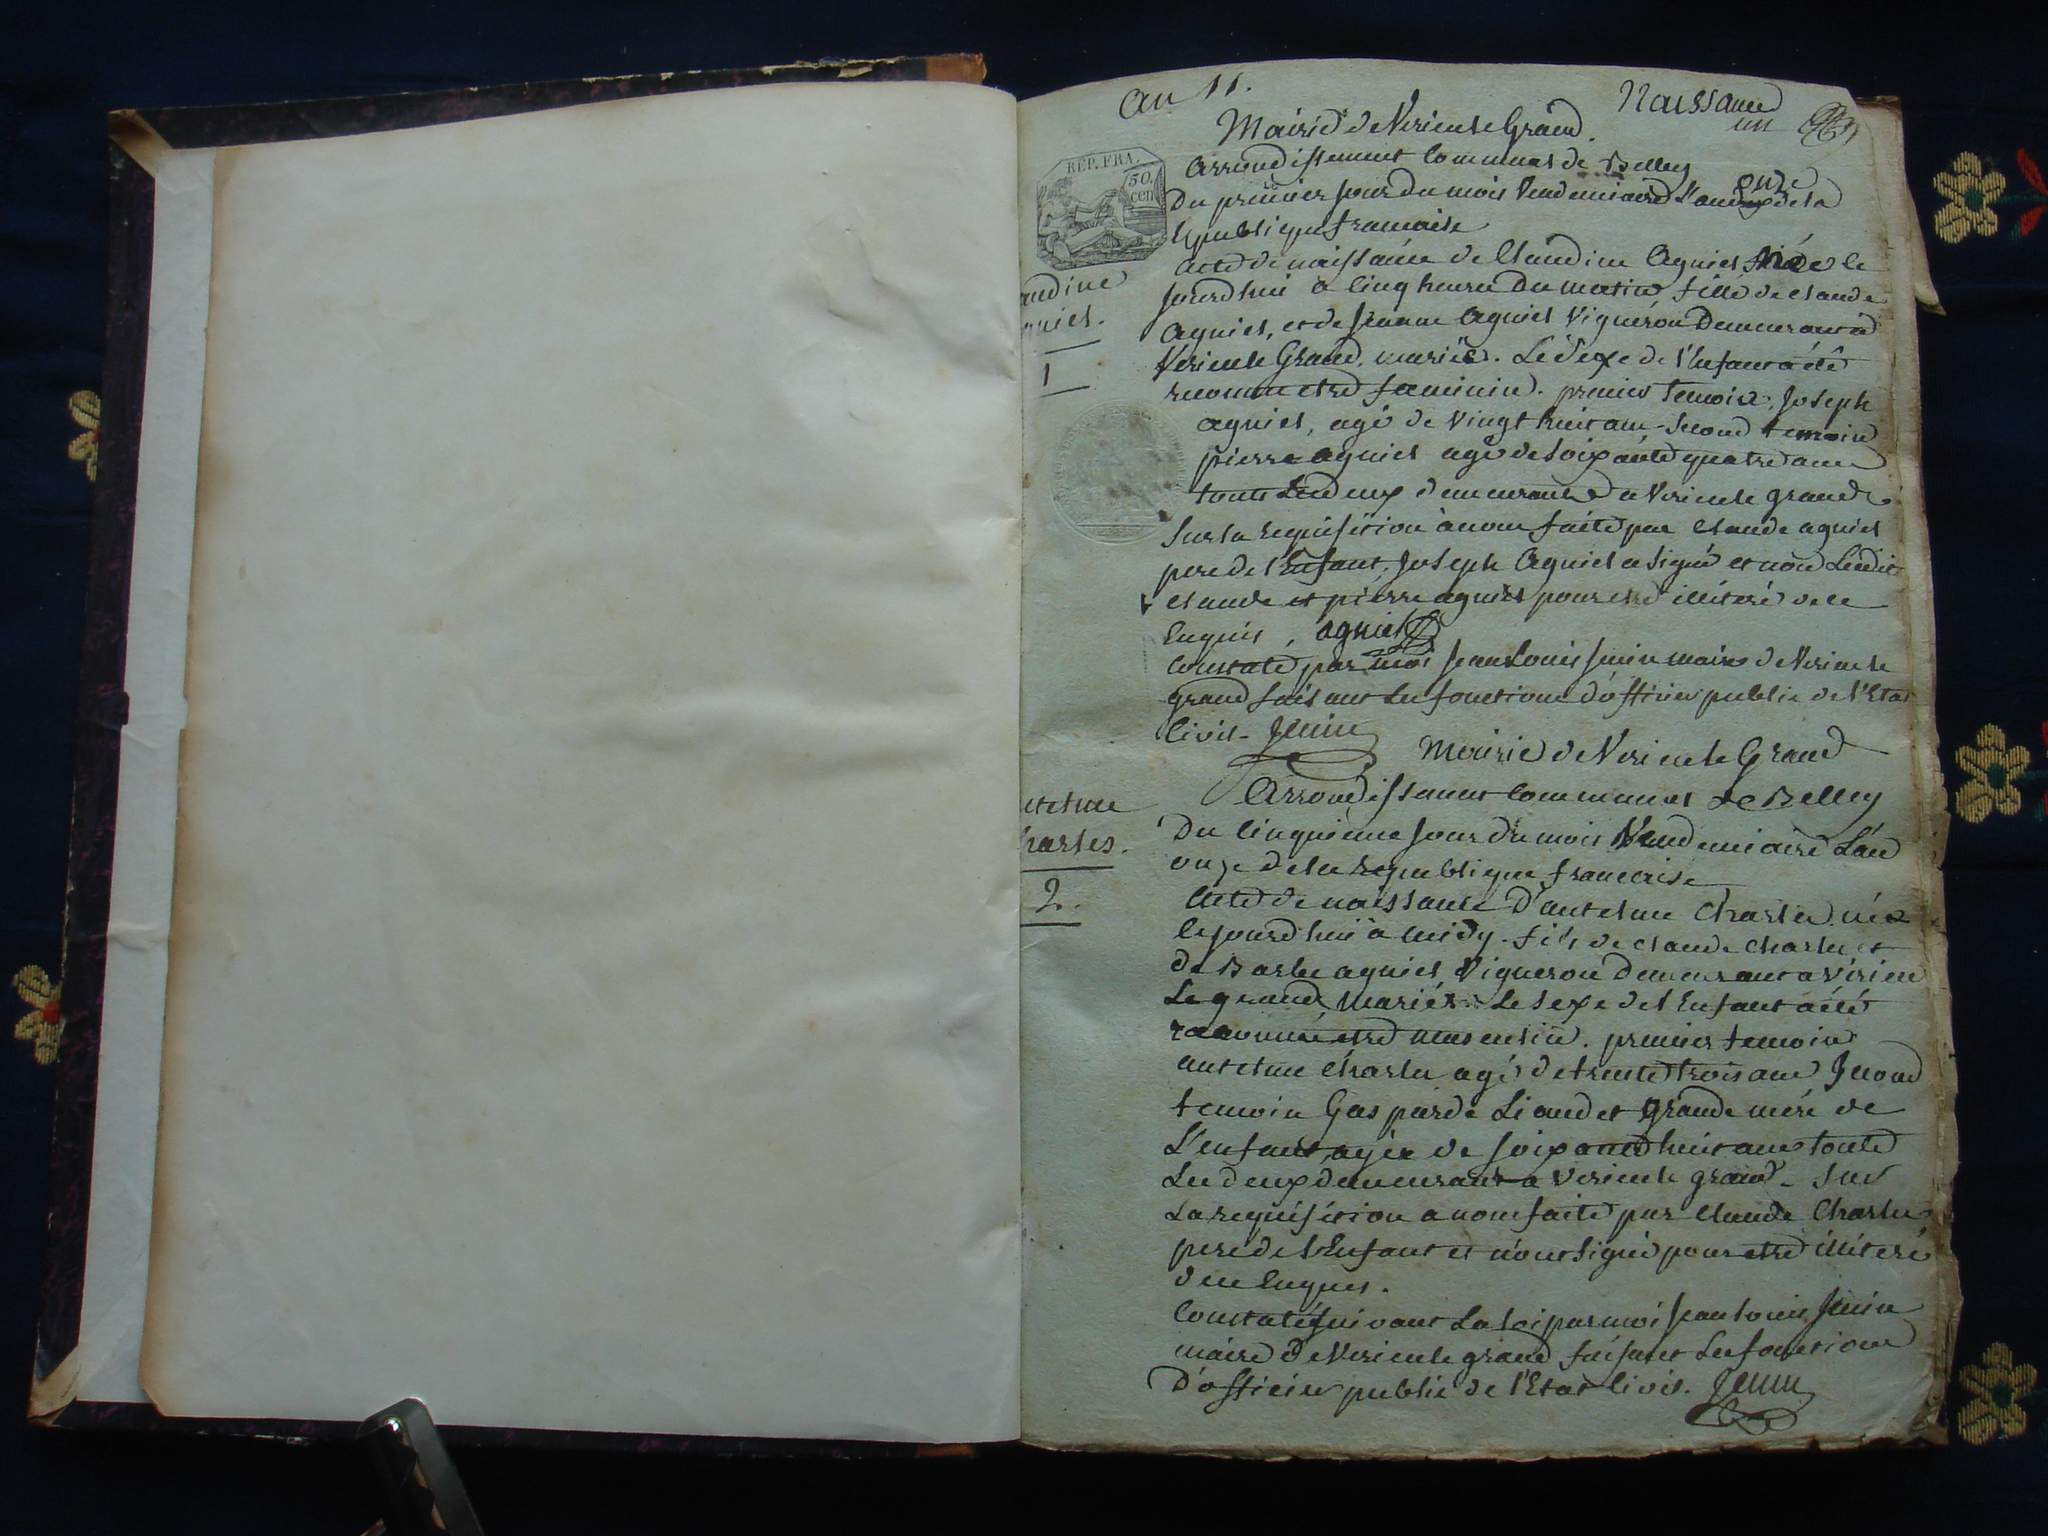 an 11.
Naissance
un
Mairie de Virieu le Grand.
REP. FRA.
50.
cen
Arrondissement Communal de Belley
onze
Du premier jour du mois Vendemiaire L'an de la
republique francaise
acte de naissance de Claudine Agniel née le
jourd hui à Cinq heures Du matin fille de claude
Agniel, et de jeanne Agniel Vigneron Demeurant à
Virieu le Grand. mariés. Le Sexe de l'Enfant a été
reconnu etre feminin. premier temoin, Joseph
agniel, agé de Vingt huit ans - Second temoin
pierre agniel agé de Soixante quatre ans
touts Les deux demeurant a Virieu le grand
Sur la requisition à nous faite par Claude agniel
pere de l'Enfant, Joseph Agniel a Signé et non Lesdits
claude et pierre agniel pour etre illiteré de ce
Enquis, agniel
Constaté par moi Jean Louis Jenin maire de Virieu le
grand faisant Les fonctions d'officier public de l'Etat
Civil - Jenin
audine
gniel.
1
Mairie de Virieu le Grand
Arrondissement Communal de Belley
Du Cinquieme Jour du mois Vendemiaire L'an
onze de la republique francaise
Acte de naissance D'antelme Charles né
le jourd hui à midy. fils de claude Charles et
de Barbe agniel Vigneron Demeurant a Virieu
Le grand Mariés. Le Sexe de l'Enfant a été
reconnu etre masculin. premier temoin
antelme Charles agé de trente trois ans Second
temoin Gasparde Liaudet Grande mere de
L'enfant, agée de soixante huit ans touts
Les deux demeurant a Virieu le grand - Sur
La requisition a nous faite par Claude Charles
pere de l'Enfant et n'ont Signé pour etre illiteré
de ce Enquis.
Constaté suivant La loi par moi Jean Louis Jenin
maire de Virieu le grand faisant Les fonctions
D'officier public de l'Etat Civil. Jenin
ntelme
harles.
2.